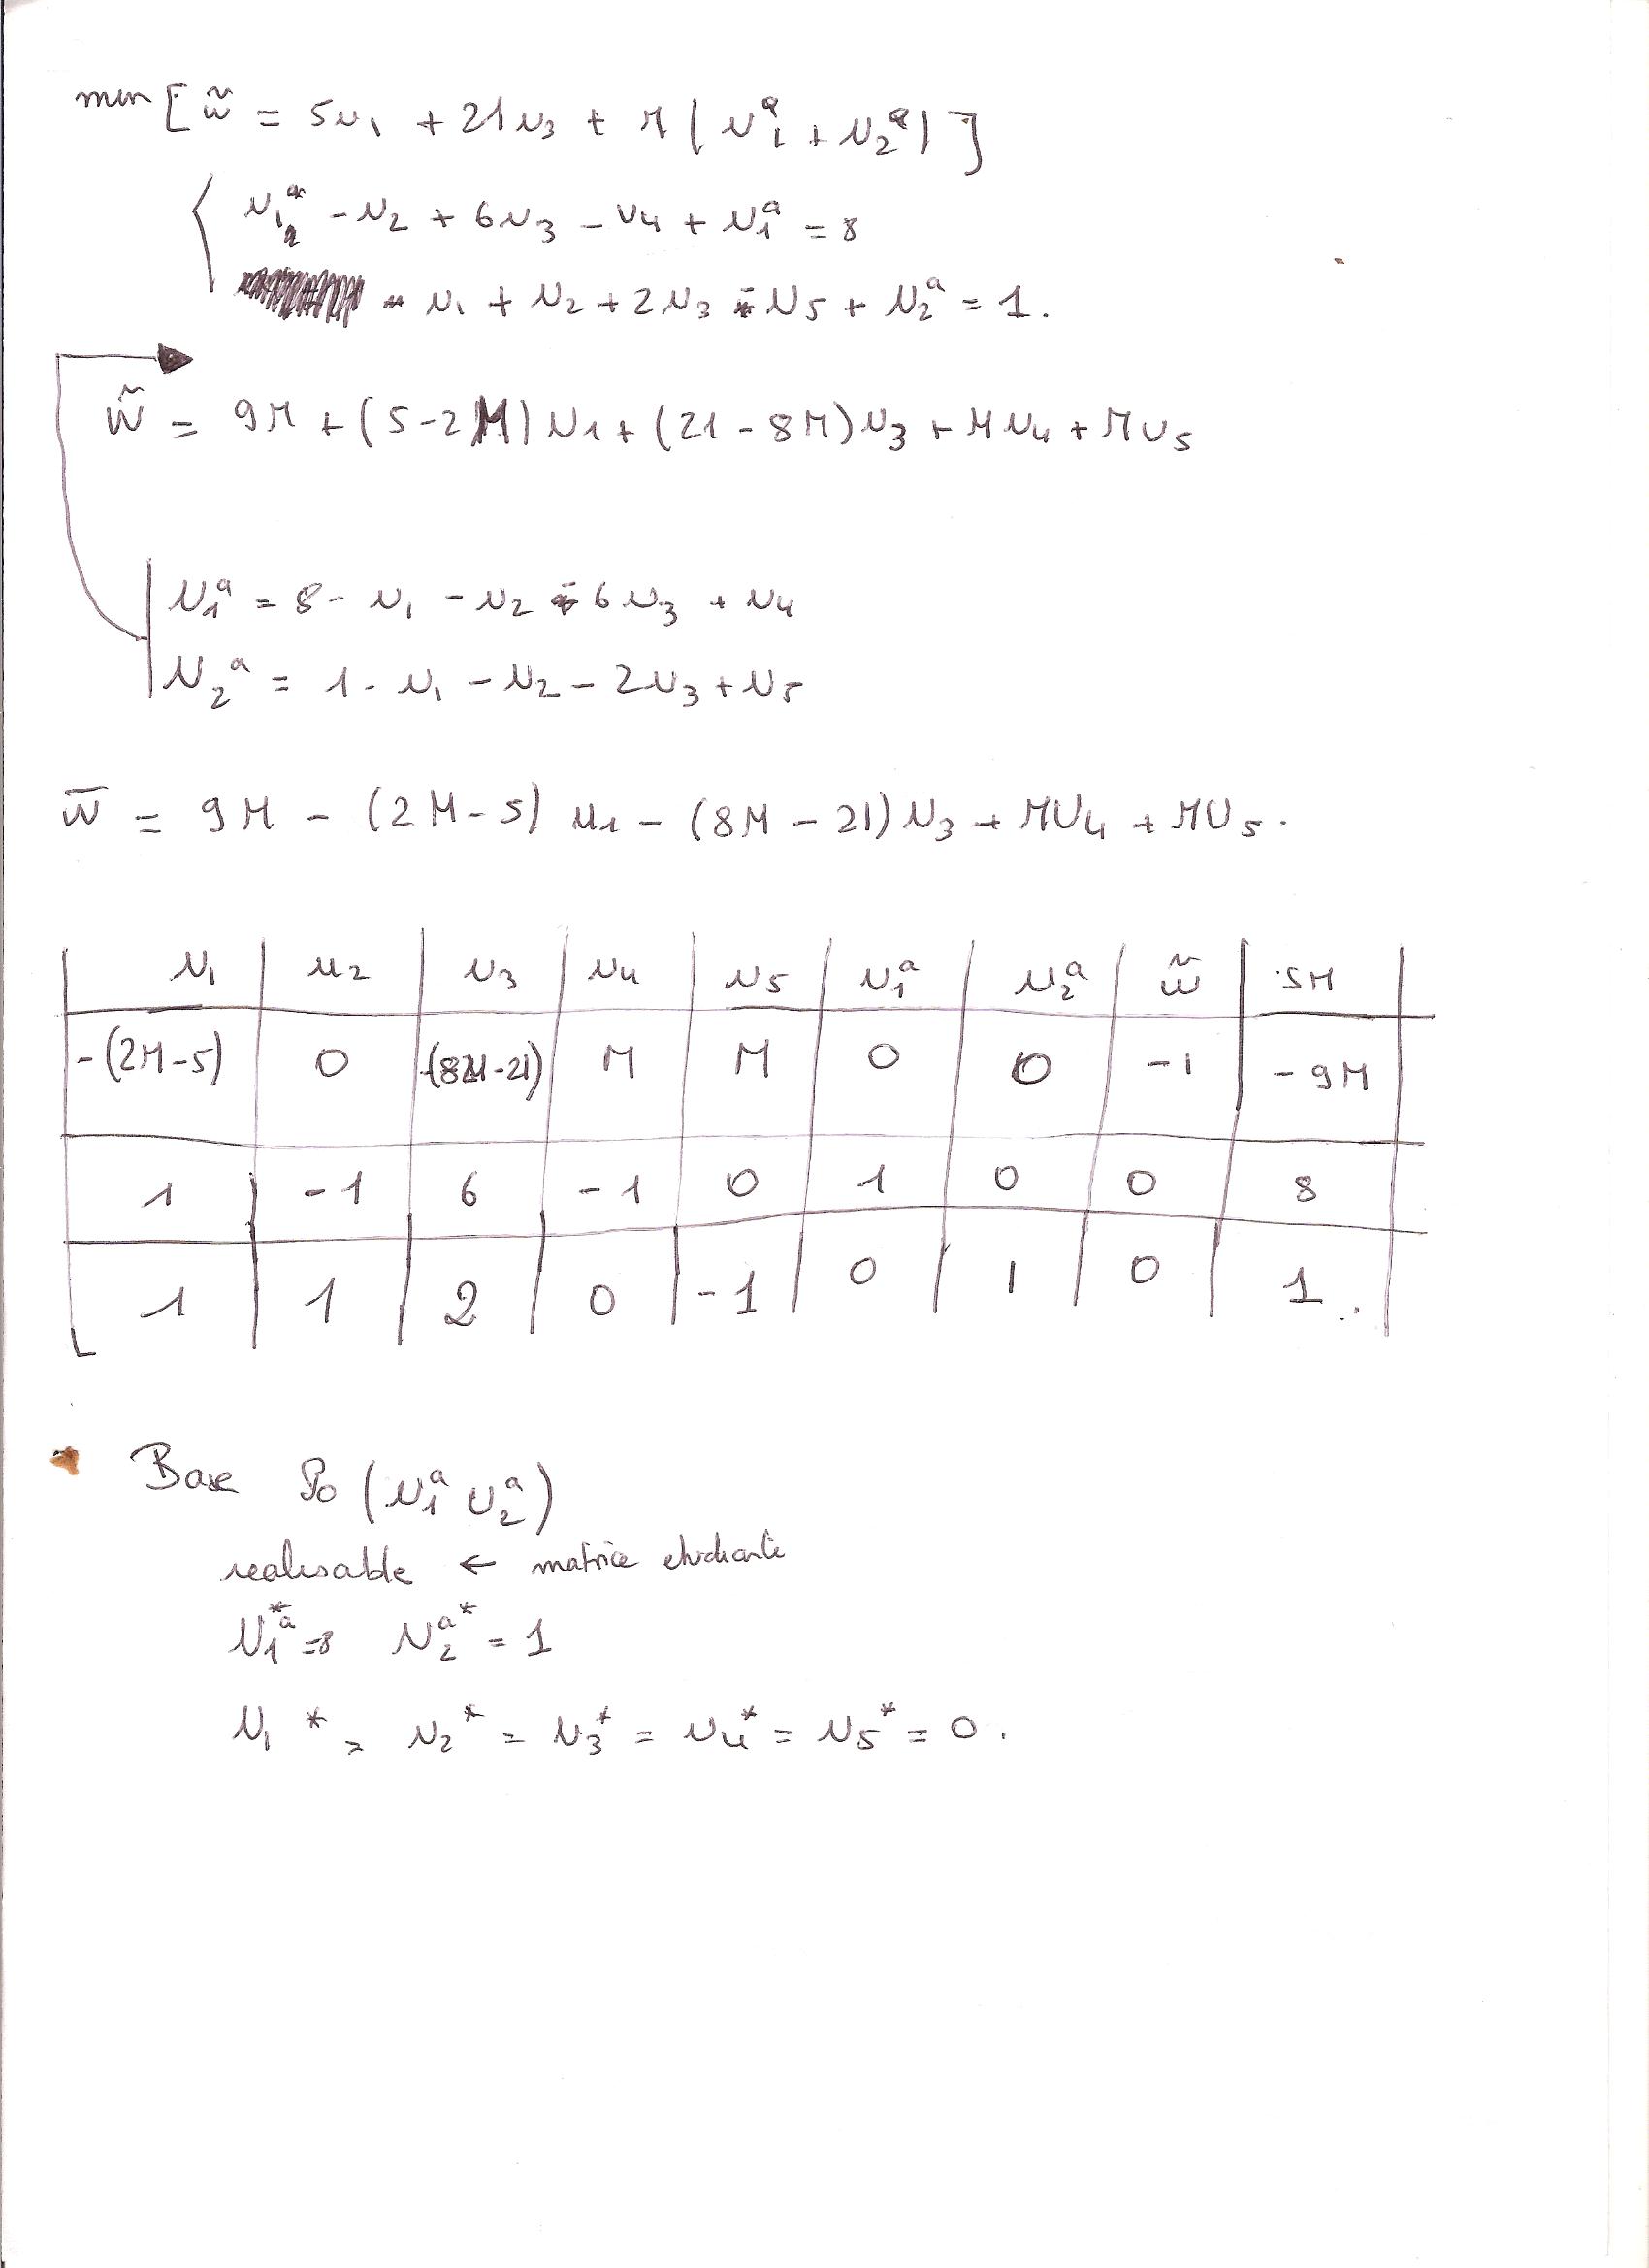 min [ w̃ = 5u₁ + 21u₃ + M ( u₁ᵃ + u₂ᵃ ) ]
u₁ - u₂ + 6u₃ - u₄ + u₁ᵃ = 8
u₁ + u₂ + 2u₃ - u₅ + u₂ᵃ = 1.
w̃ = 9M + (5-2M) u₁ + (21-8M) u₃ + M u₄ + M u₅
u₁ᵃ = 8 - u₁ - u₂ - 6u₃ + u₄
u₂ᵃ = 1 - u₁ - u₂ - 2u₃ + u₅
w̄ = 9M - (2M-5) u₁ - (8M-21) u₃ + M u₄ + M u₅.
u₁ u₂ u₃ u₄ u₅ u₁ᵃ u₂ᵃ w̃ SM
-(2M-5) 0 -(8M-21) M M 0 0 -1 -9M
1 -1 6 -1 0 1 0 0 8
1 1 2 0 -1 0 1 0 1
Base (u₁ᵃ u₂ᵃ)
realisable ← matrice
u₁ᵃ* = 8 u₂ᵃ* = 1
u₁* = u₂* = u₃* = u₄* = u₅* = 0.